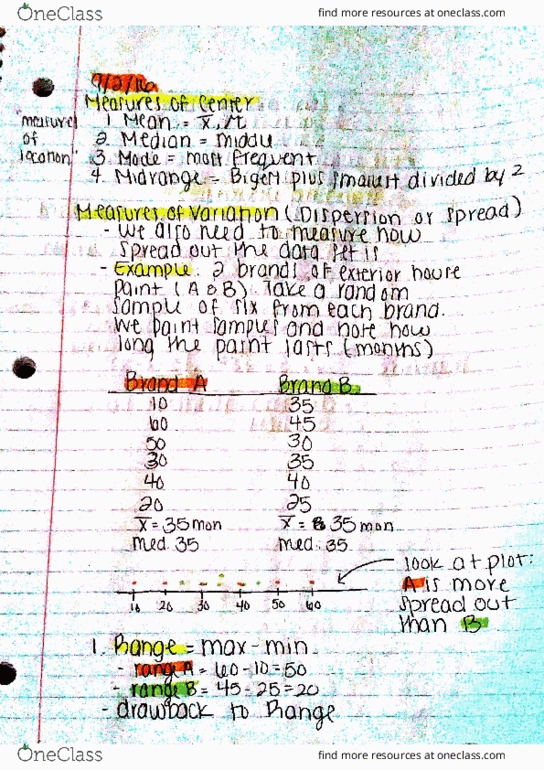 OneClass
find more resources at oneclass.com
9/2/16
Measures of Center
"measures of location"
1. Mean = x̄, μ
2. Median = middle
3. Mode = most frequent
4. Midrange = Bigest plus smallest divided by 2
Measures of Variation (Dispersion or Spread)
- We also need to measure how
spread out the data set is
- Example: 2 brands of exterior house
paint (A & B). Take a random
sample of six from each brand.
We paint samples and note how
long the paint lasts (months)
Brand A Brand B
10 35
60 45
50 30
30 35
40 40
20 25
x̄ = 35 mon x̄ = 35 mon
med. 35 med. 35
look at plot:
A is more
spread out
than B
10 20 30 40 50 60
1. Range = max - min
- range A = 60 - 10 = 50
- range B = 45 - 25 = 20
- drawback to Range
OneClass
find more resources at oneclass.com